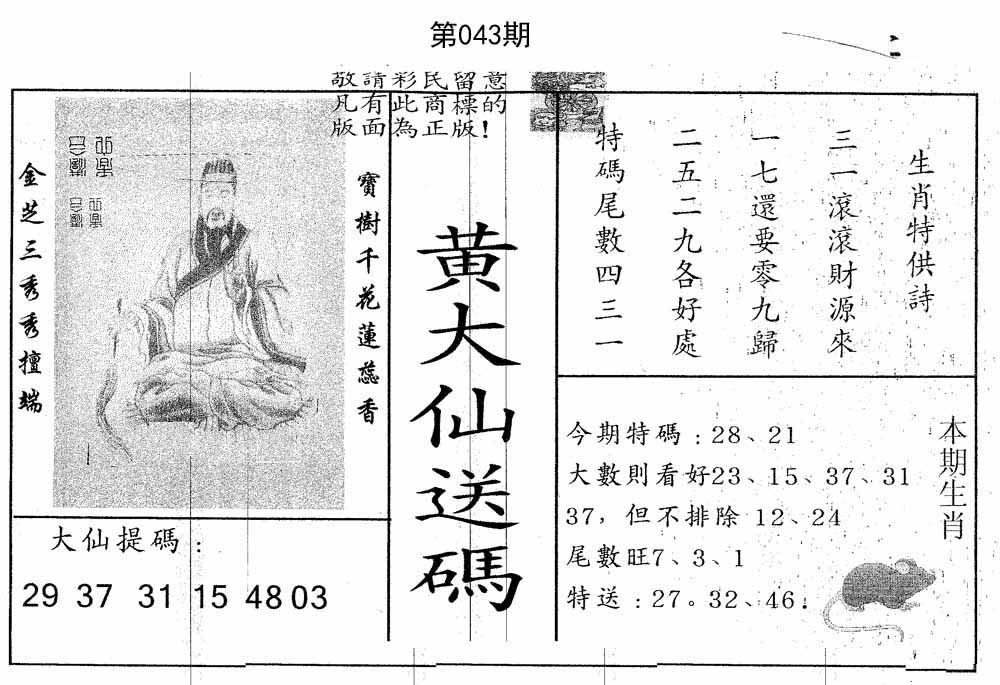 第043期
敬請彩民留意
凡有此商標的
版面為正版!
金芝三秀秀擅端
寶樹千花蓮蕊香
黃大仙送碼
生肖特供詩
三一滾滾財源來
一七還要零九歸
二五二九各好處
特碼尾數四三一
大仙提碼:
29 37 31 15 48 03
今期特碼:28、21
大數則看好23、15、37、31
37,但不排除 12、24
尾數旺7、3、1
特送:27。32、46.
本期生肖